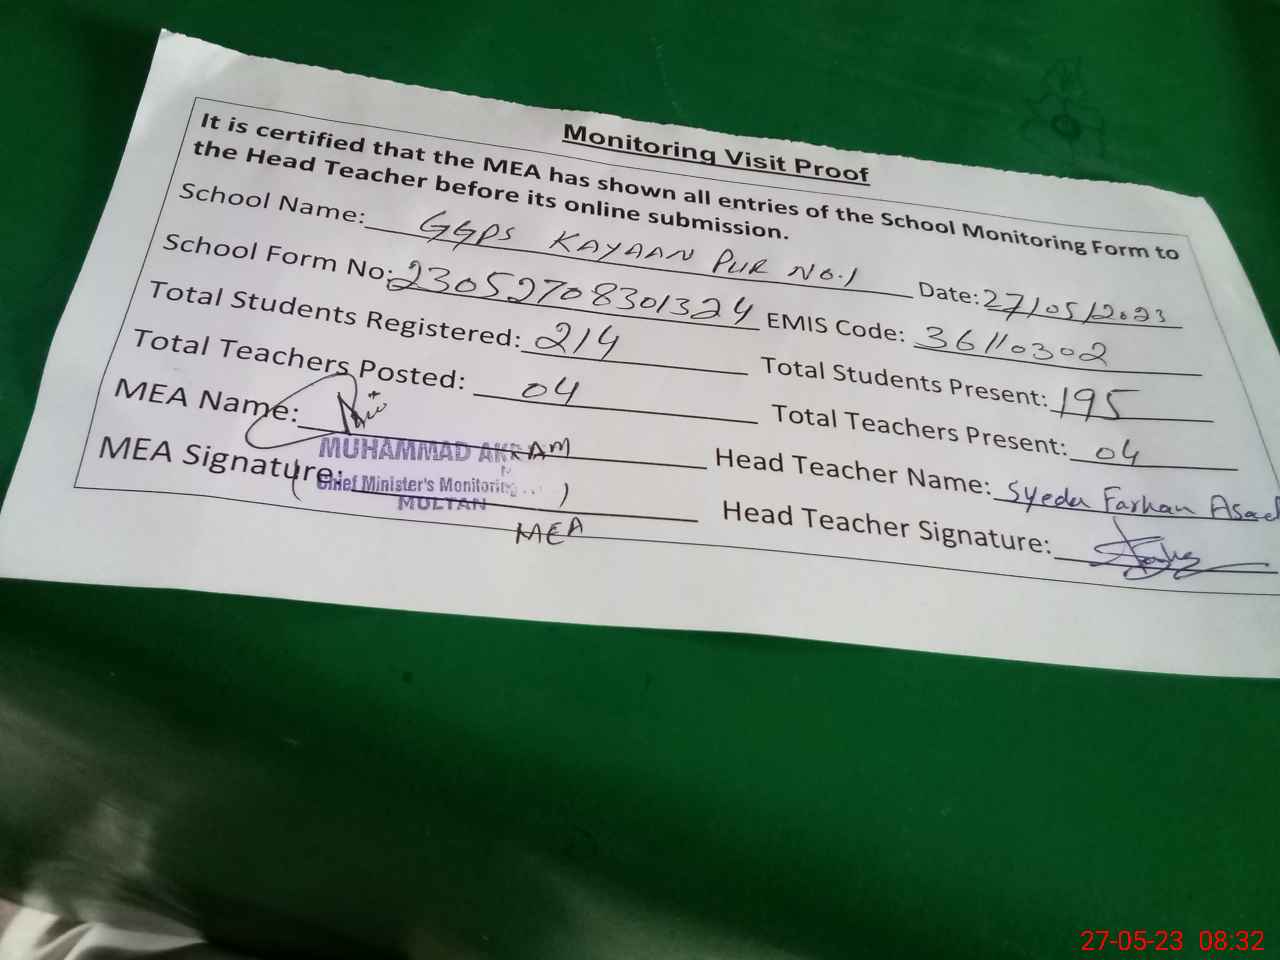 Monitoring Visit Proof
It is certified that the MEA has shown all entries of the School Monitoring Form to
the Head Teacher before its online submission.
School Name: GGPS KAYAAN PUR NO.1 Date: 27/05/2023
School Form No: 23052708301324 EMIS Code: 36110302
Total Students Registered: 214 Total Students Present: 195
Total Teachers Posted: 04 Total Teachers Present: 04
MEA Name: Head Teacher Name: Syeda Farhan Asad
MUHAMMAD AKRAM
MEA Signature: Head Teacher Signature:
(Chief Minister's Monitoring )
MULTAN
MEA
27-05-23 08:32